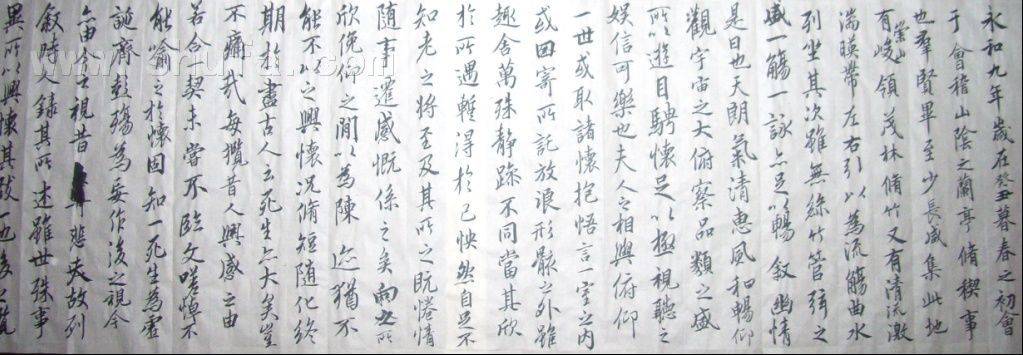 永和九年歲在癸丑暮春之初會
于會稽山陰之蘭亭脩稧事
也羣賢畢至少長咸集此地
有崇山峻領茂林脩竹又有清流激
湍暎帶左右引以為流觴曲水
列坐其次雖無絲竹管弦之
盛一觴一詠亦足以暢叙幽情
是日也天朗氣清惠風和暢仰
觀宇宙之大俯察品類之盛
所以遊目騁懷足以極視聽之
娛信可樂也夫人之相與俯仰
一世或取諸懷抱悟言一室之內
或因寄所託放浪形骸之外雖
趣舍萬殊静躁不同當其欣
於所遇暫得於己怏然自足不
知老之將至及其所之既惓情
隨事遷感慨係之矣向之所
欣俛仰之間以為陳迹猶不
能不以之興懷況脩短隨化終
期於盡古人云死生亦大矣豈
不痛哉每攬昔人興感之由
若合一契未嘗不臨文嗟悼不
能喻之於懷固知一死生為虛
誕齊彭殤為妄作後之視今
亦由今之視昔悲夫故列
叙時人錄其所述雖世殊事
異所以興懷其致一也後之覽